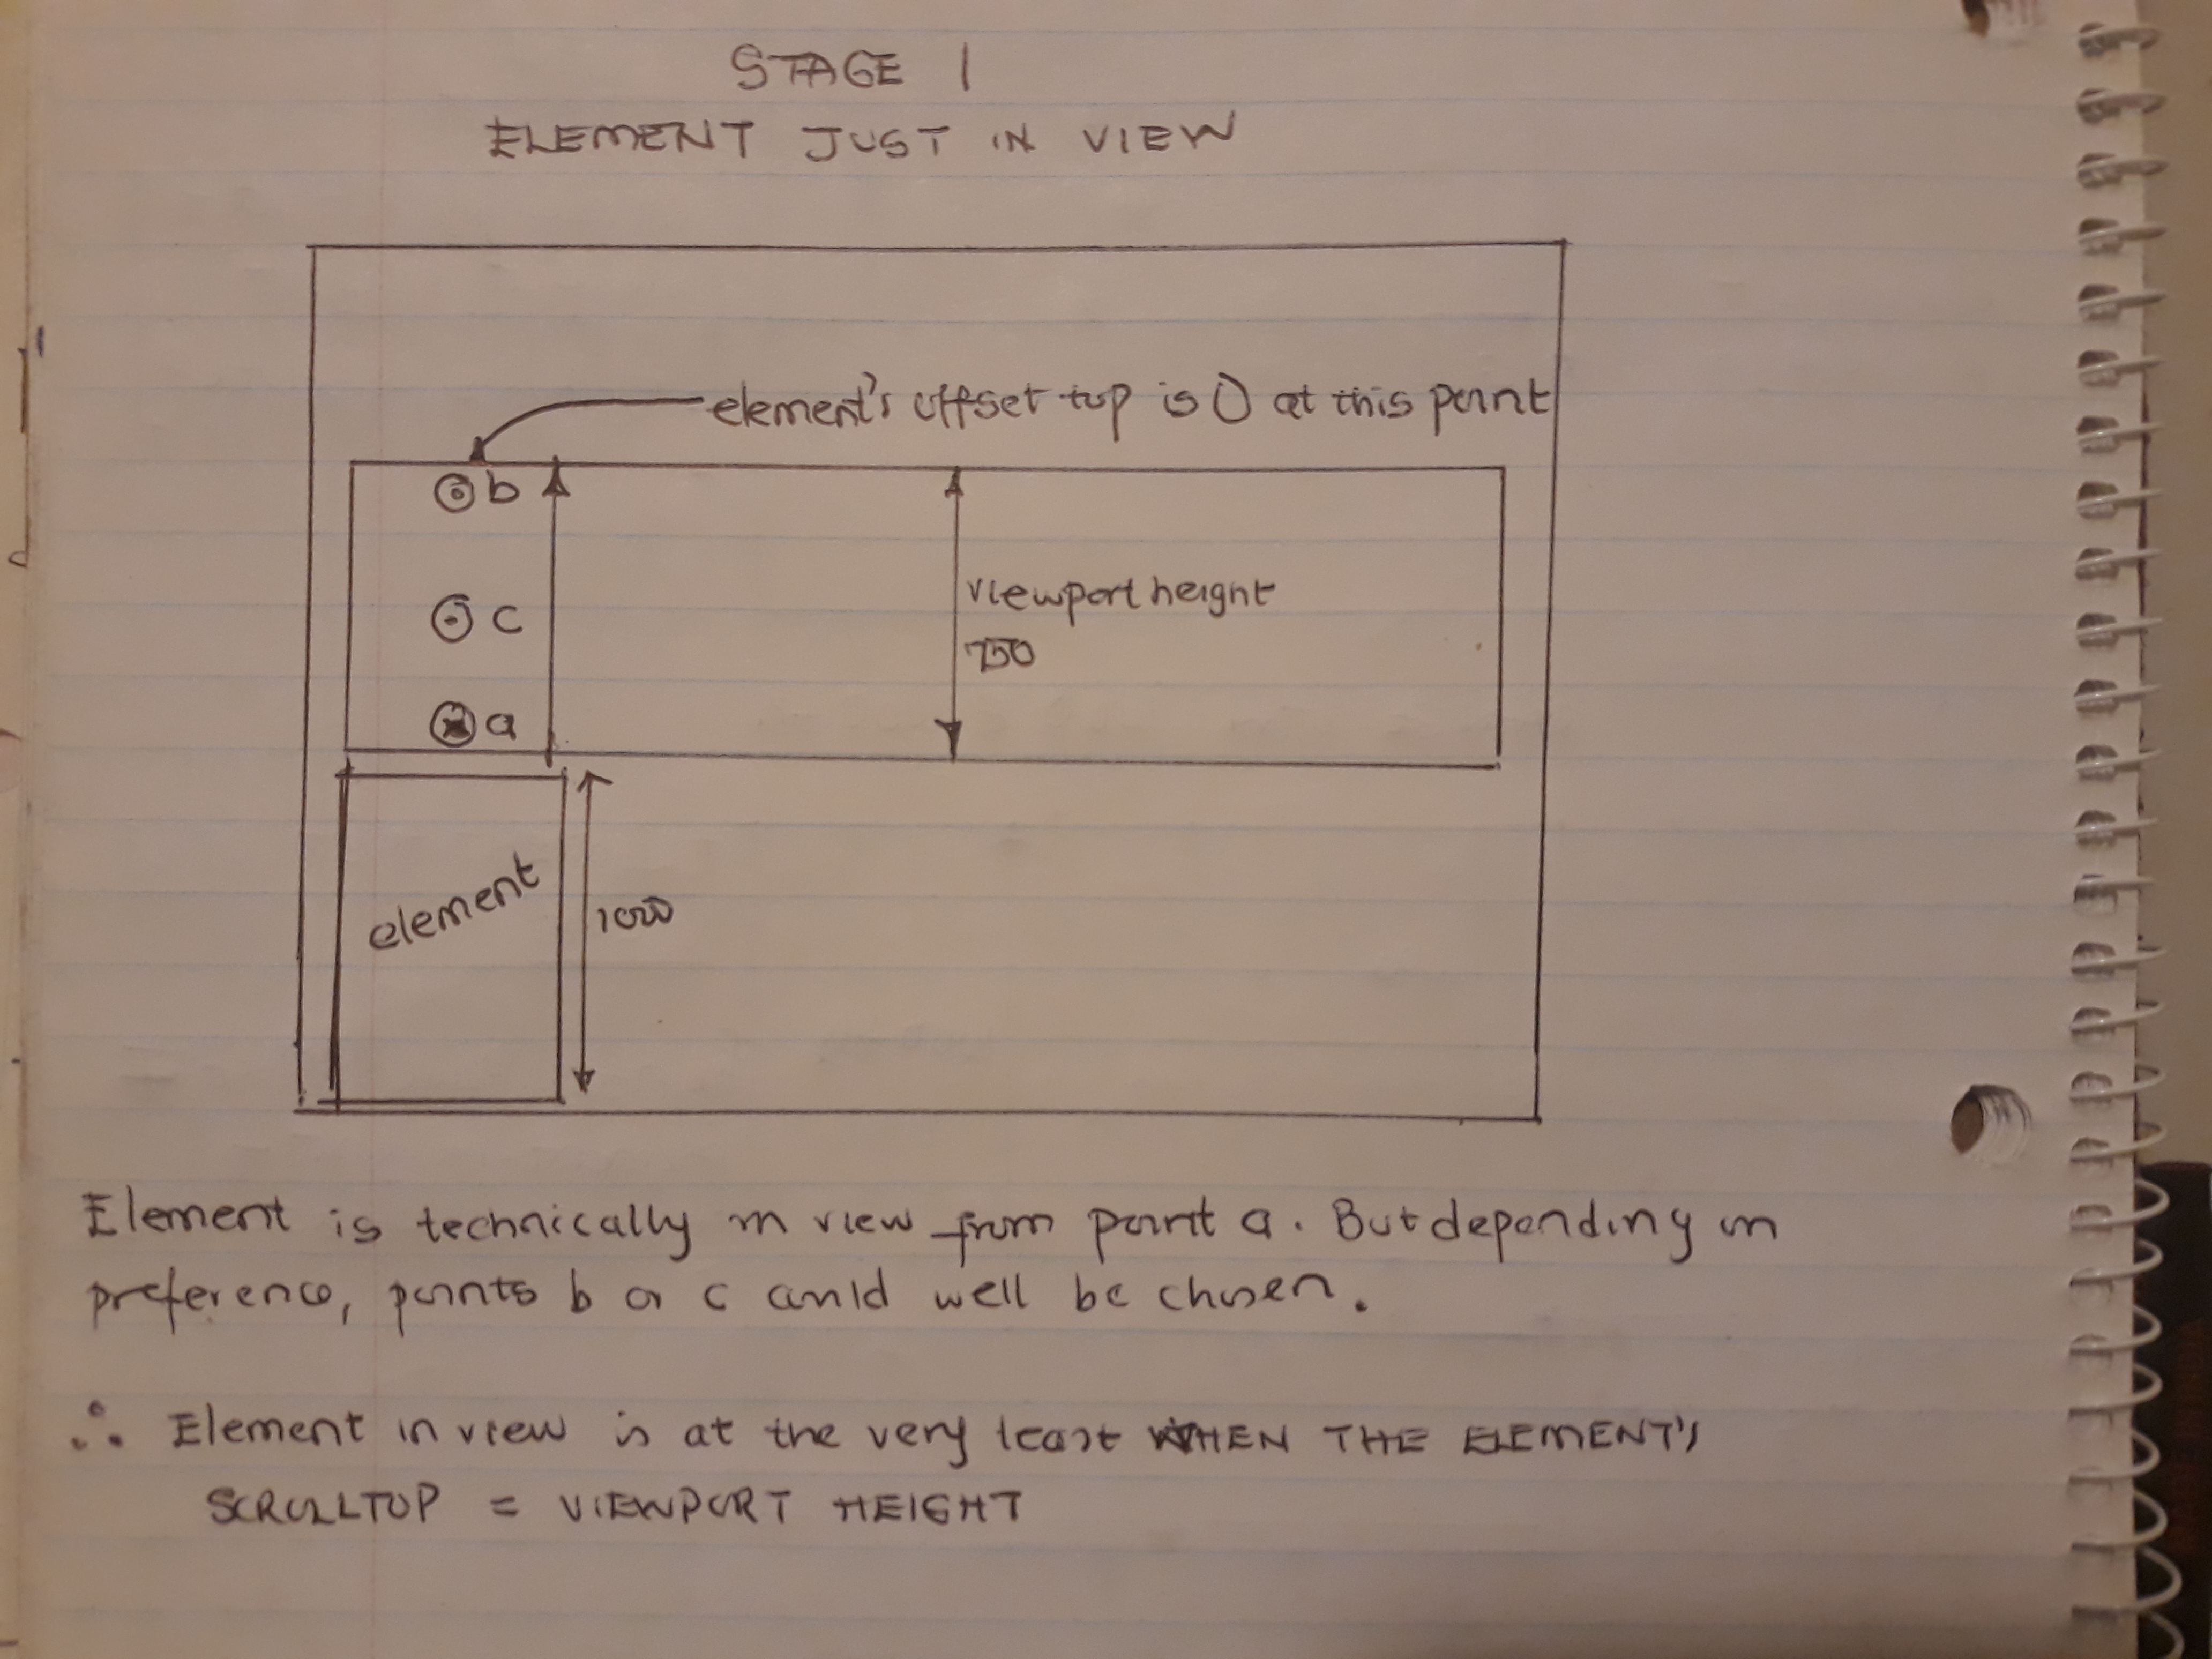 STAGE 1
ELEMENT JUST IN VIEW
element's offset top is 0 at this point
b
c
viewport height
750
a
element
1000
Element is technically in view from point a. But depending on
preference, points b or c could well be chosen.
∴ Element in view is at the very least WHEN THE ELEMENT'S
SCROLLTOP = VIEWPORT HEIGHT